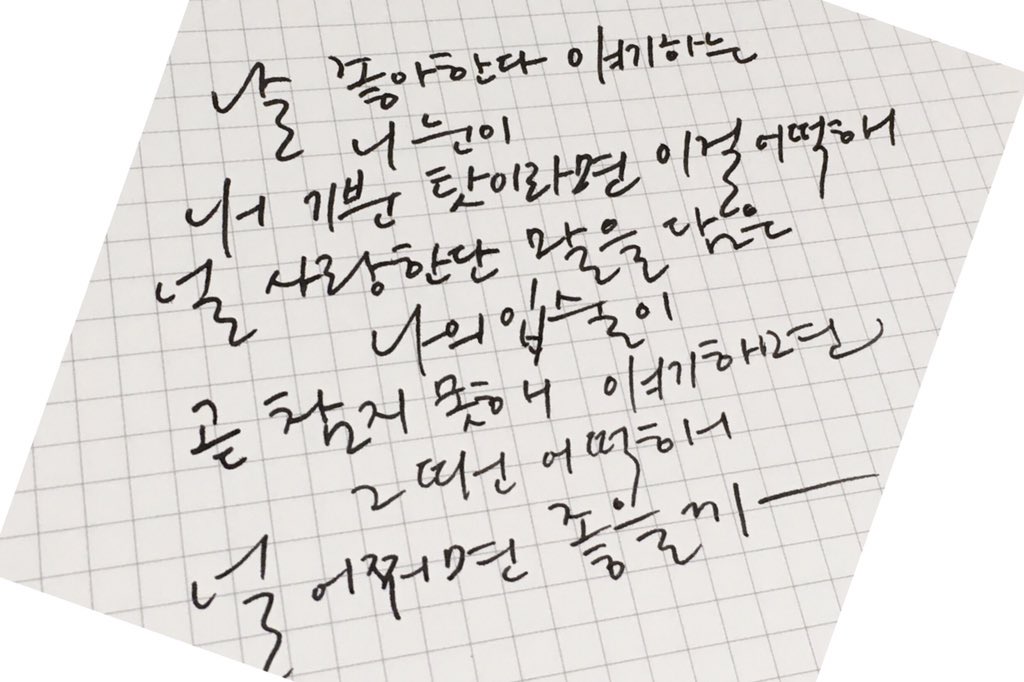 날 좋아한다 얘기하는
네 눈이
내 기분 탓이라면 이걸 어떡해
널 사랑한단 말을 담은
나의 입술이
곧 참지 못해 얘기해오면
그 땐 어떡해
널 어쩌면 좋을까